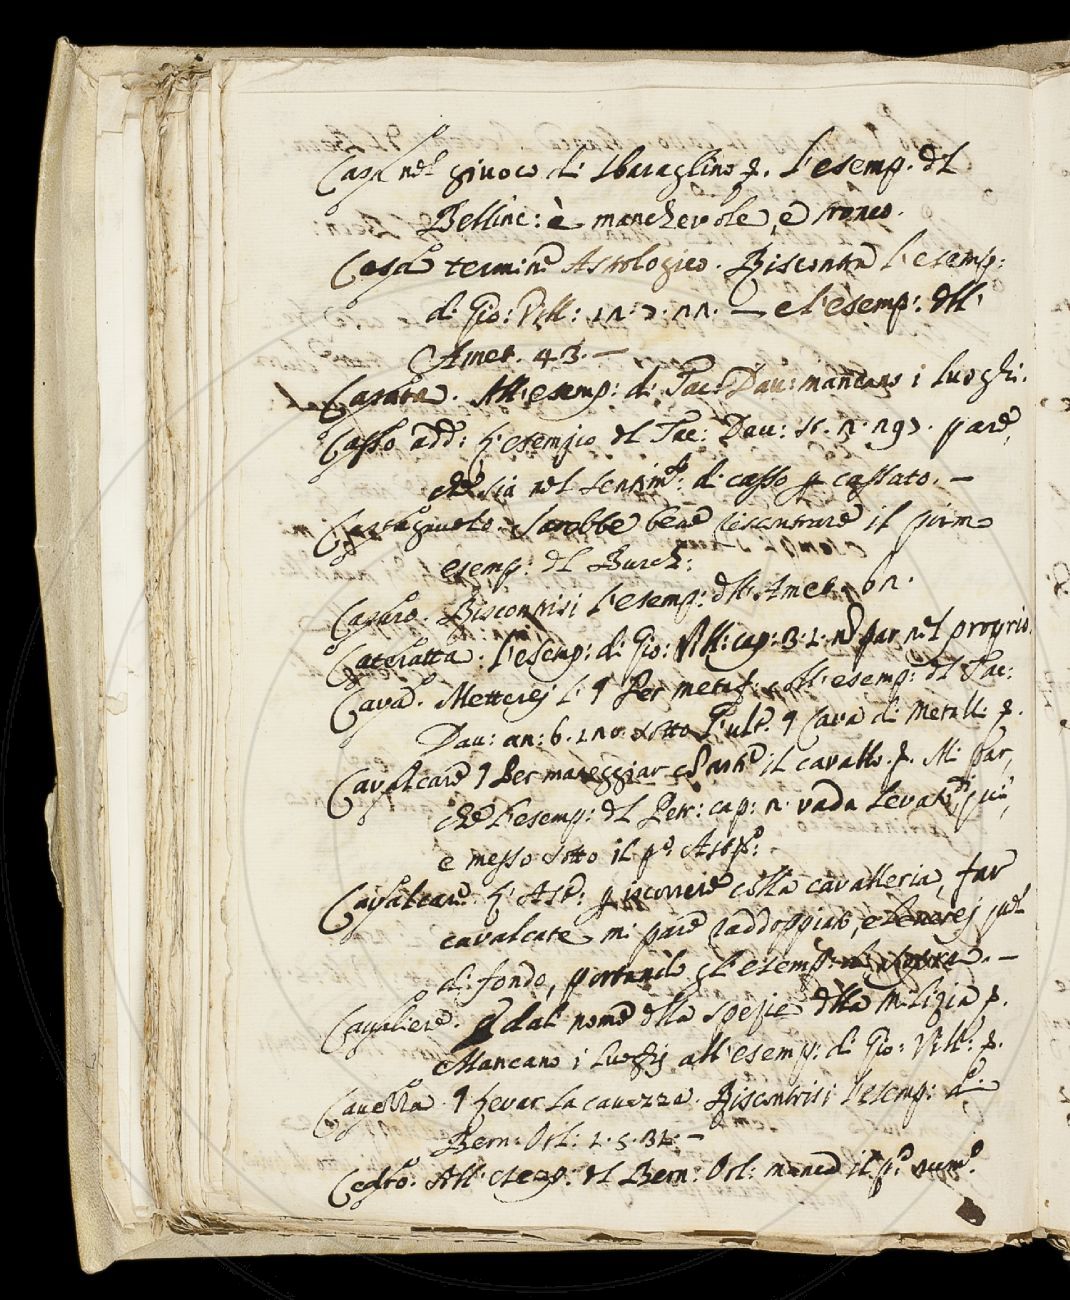 Casa nel giuoco di sbaraglino p. L'esemp. dl
Bellinc: è manchevole, e tronco.
Casa termine Astrologico. Riscontra l'esemp:
di Gio: Vill: 12. 2. — e l'esemp: dll'
Amet. 43. —
Casata. All'esemp: di Tac: Dav: mancano i luoghi.
Casso add: L'esempio dl Tac: Dav: 15. 2. 297. pare,
che sia nel sentim.to di casso p cassato. —
Sarebbe bene riscontrare il primo
esemp: dl Burch:
Riscontrisi l'esemp: dll'Amet. 62.
Cateratta. L'esemp: di Gio: Vill: cap: 3. 1. par nel proprio.
Cava. Metterej il ¶ Per metaf. coll'esemp: dl Tac:
Dav: an: 6. 120. sotto l'ult.o ¶ Cava di Metalli p.
Cavalcare ¶ Per maneggiar il cavallo. p. Mi par,
che l'esemp: dl Petr: cap: 2. vada levato di quì,
e messo sotto il p.o
Cavalcare p iscorrere colla cavalleria, far
cavalcate mi pare raddoppiato, e leverej quel
di fondo, portando gl'esemp:
Cavaliere. ¶ dal nome dlla spezie dlla milizia p.
Mancano i luoghj all'esemp: di Gio: Vill: p.
Cavezza. ¶ Levar la cavezza. Riscontrisi l'esemp: dl
Bern: Orl: 1. 5. 31. —
All'esemp: dl Bern: Orl: manca il p.o num.o